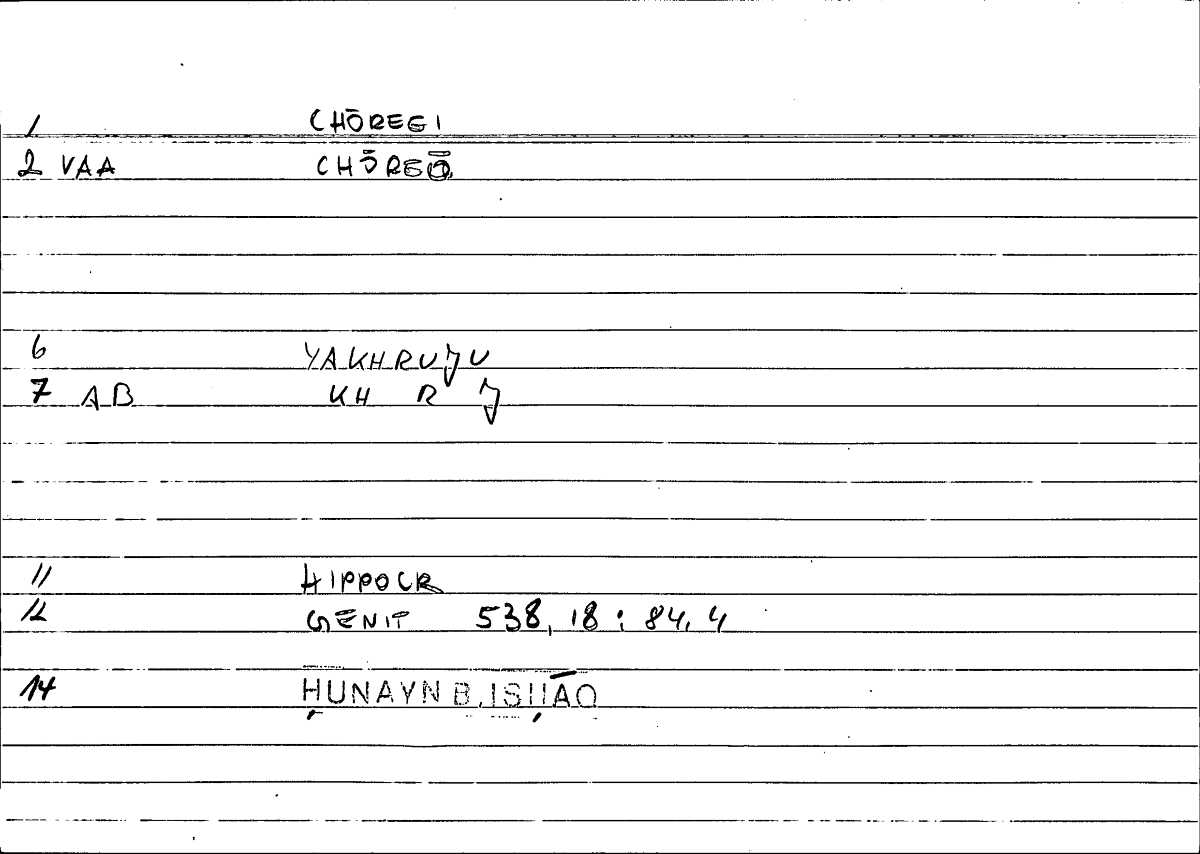 1 CHŌREGI
2 VAA CHŌREŌ
6 YAKHRUJU
7 AB KH R J
11 HIPPOCR
12 GENIT 538, 18 : 84, 4
14 ḤUNAYN B. ISḤĀQ